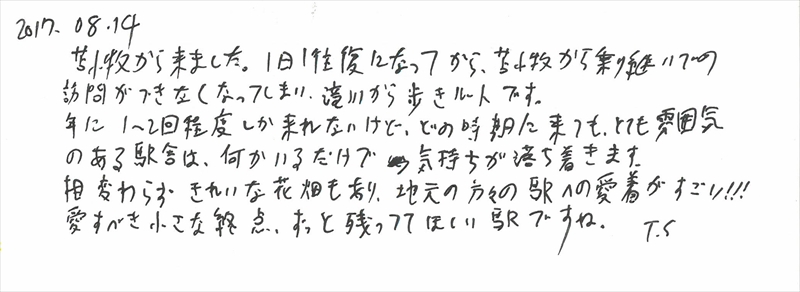 2017. 08.14
苫小牧から来ました。1日1往復になってから、苫小牧から乗り継いでの
訪問ができなくなってしまい、滝川から歩きルートです。
年に1〜2回程度しか来れないけど、どの時期に来ても、とても雰囲気
のある駅舎は、何かいるだけで 気持ちが落ち着きます。
相変わらず きれいな花畑もあり、地元の方々の駅への愛着がすごい!!!
愛すべき小さな終点、ずっと残っててほしい駅ですね。 T.S